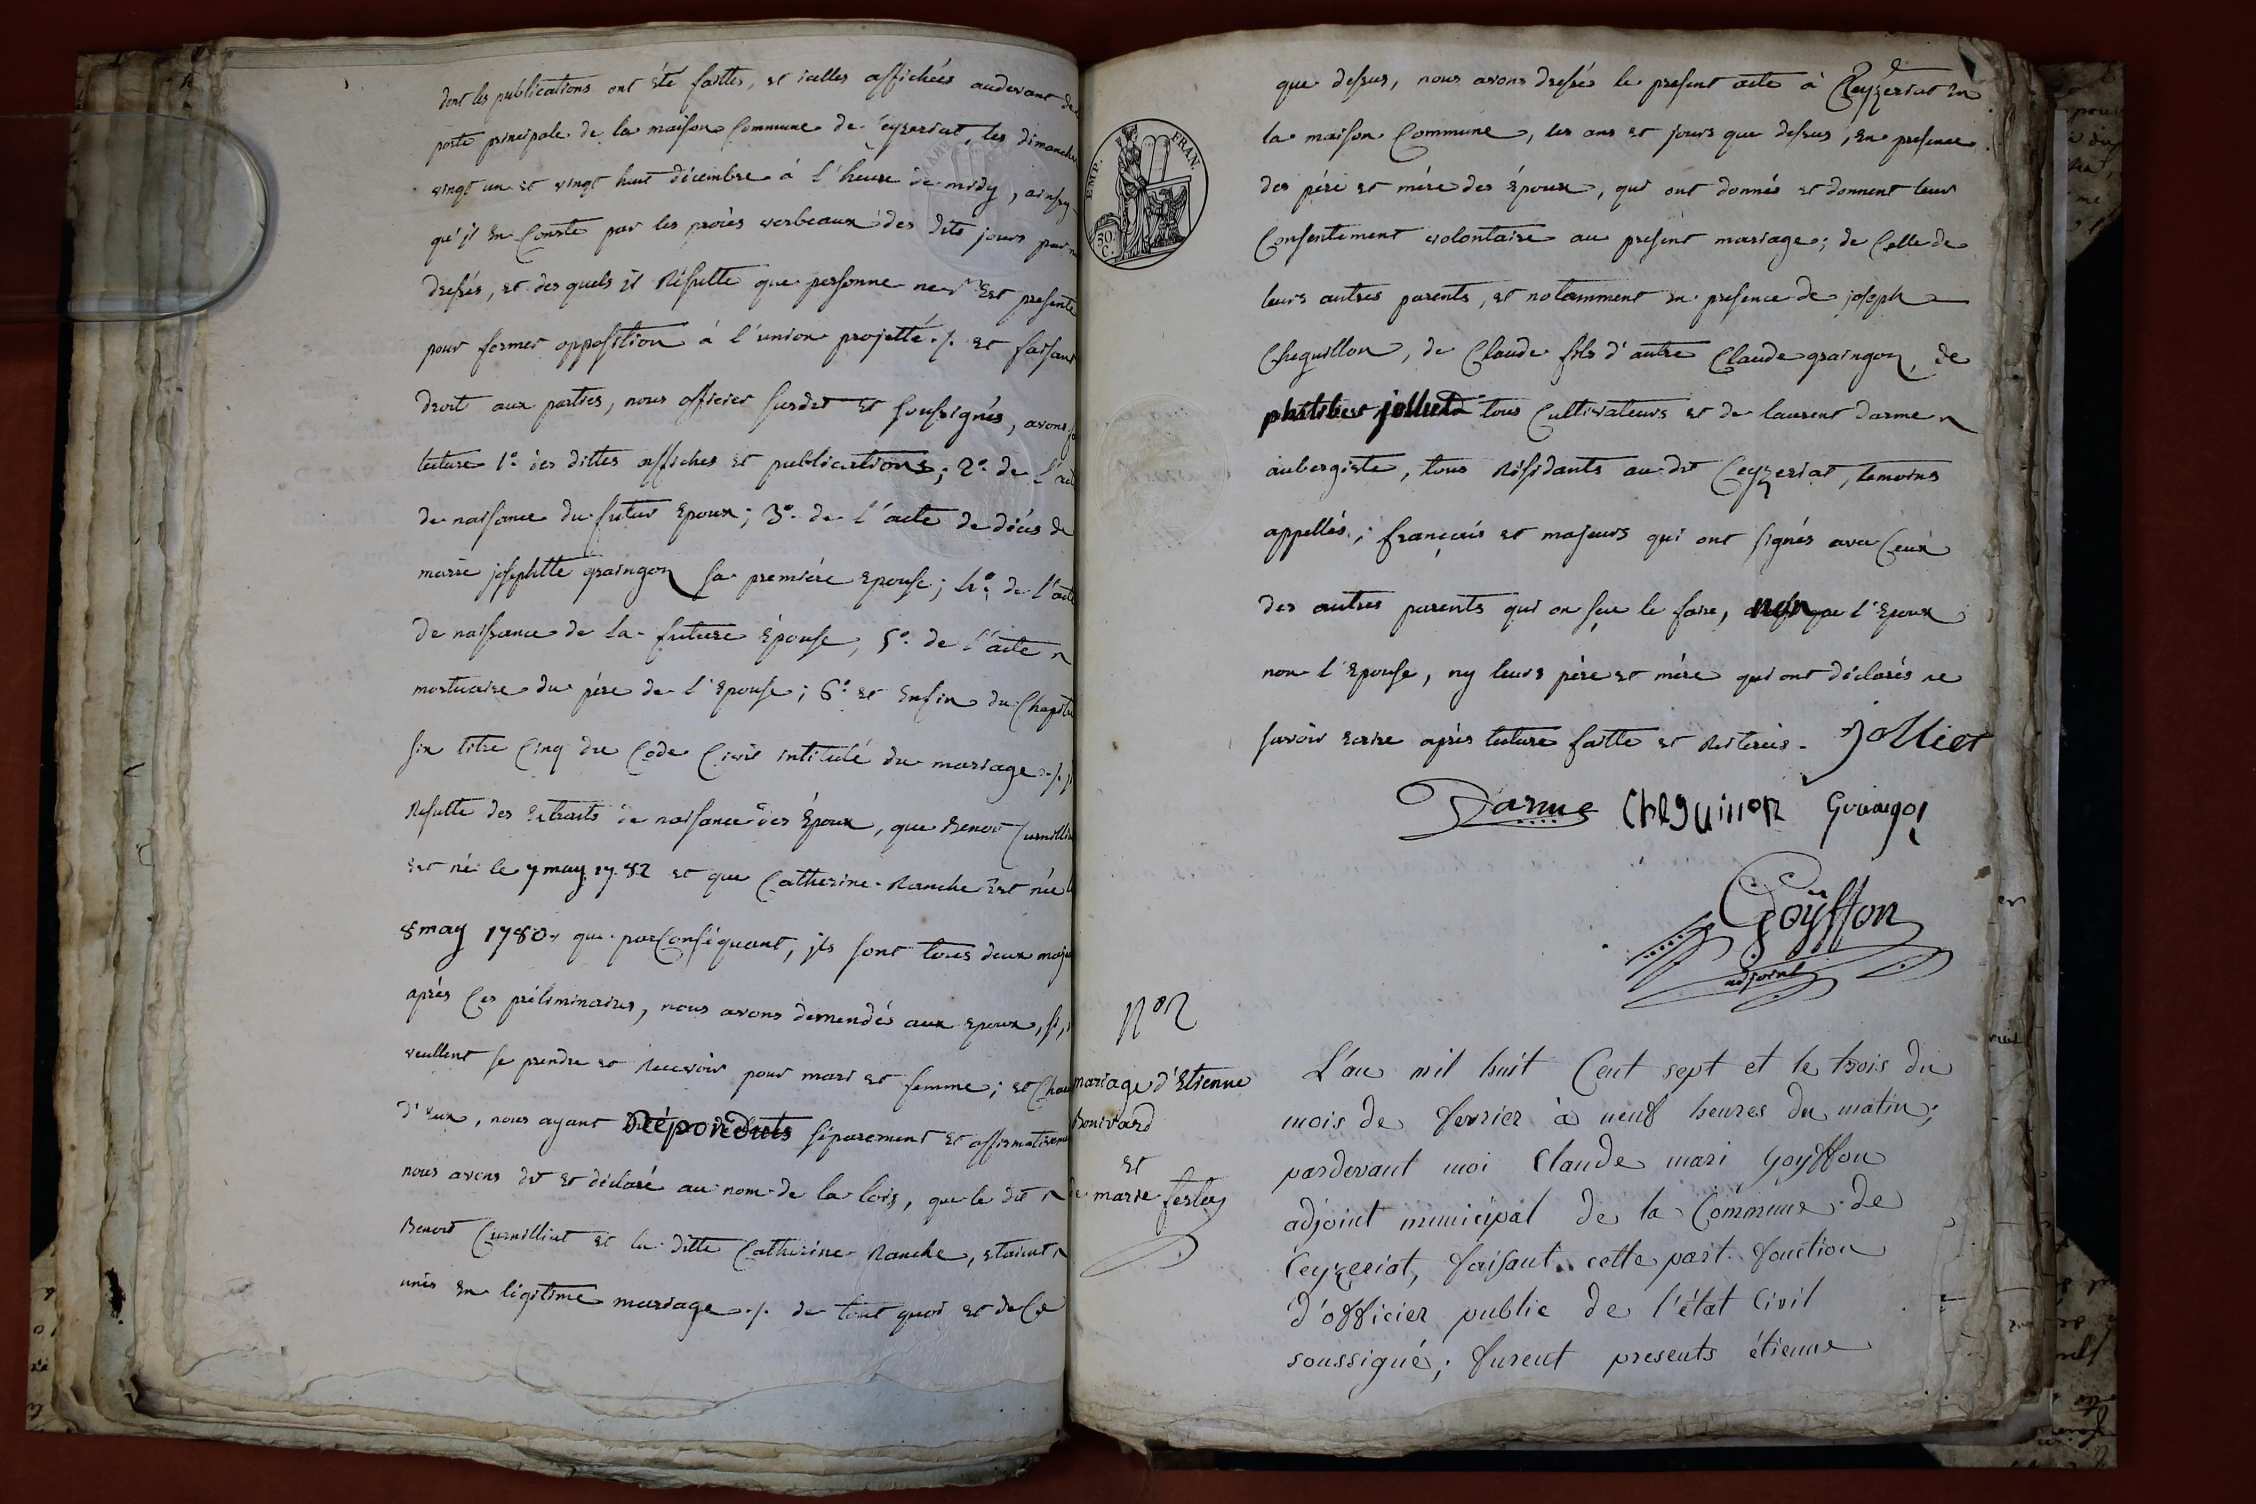 dont les publications ont été faittes, et icelles affichées audevant de
porte principale de la maison Commune de Ceyzeriat, les dimanches
vingt un et vingt huit décembre à l'heure de midy, ainsy
qu'il en Conste par les procès verbeaux des dits jours par
dressés, et des quels il Résulte que personne ne s'est présenté
pour former opposition à l'union projetté ./. et faisant
droit aux parties, nous officier susdit et soussignés, avons
lecture 1º des dittes affiches et publications; 2º de l'acte
de naissance du futur Epoux; 3º de l'acte de décès de
marie josephtte graingon sa première epouse; 4º de l'acte
de naissance de la future Épouse, 5º de l'acte
mortuaire du père de l'Epouse; 6º et Enfin du Chapitre
six titre Cinq du Code Civil intitulé du mariage ./.
Résulte des Extraits de naissance des Époux, que Benoit Curnillin
est né le 7 may 1782 et que Catherine Ranche Est née
8 may 1780, que parConséquant, ils sont tous deux maj
après Ces préliminaires, nous avons demendés aux epoux, si,
veullent se prendre et Recevoir pour mari et femme; et Chac
d'Eux, nous ayant répondus séparement et affirmativem
nous avons dit et déclaré au nom de la lois, que le dit
Benoit Curnilliut et la ditte Catherine Ranche, etaient
unis en légitime mariage ./. de tout quoi et de Ce
EMP. FRAN.
50. C.
que dessus, nous avons dressé le présent acte à Ceyzeriat En
la maison Commune, les ans et jours que dessus, En présence
des père et mère des époux, qui ont donnés et donnent leur
Consentement volontaire au présent mariage; de Celle de
leurs autres parents, et notamment en présence de joseph
Cheguillon, de Claude fils d'autre Claude graingon, de
philibert jolliet tous Cultivateurs et de laurent darme
aubergiste, tous Résidants au dit Ceyzeriat, temoins
appellés; français et majeurs qui ont signés avec Ceux
des autres parents qui on sçu le faire, non que l'Epoux
non l'Epouse, ny leurs père et mère qui ont déclarés ne
savoir ecrire après lecture faitte et Reiterée. Jolliet
Darme Cheguillon Graingon
Goÿffon
adjoint
Nº 2
mariage d'Etienne
Bonivard
et
de marie fesley
L'an mil huit Cent sept et le trois du
mois de fevrier à neuf heures du matin;
pardevant moi Claude mari Goyffon
adjoint municipal de la Commune de
Ceyzeriat, faisant cette part fonction
d'officier public de l'état Civil
soussigné; furent presents étienne